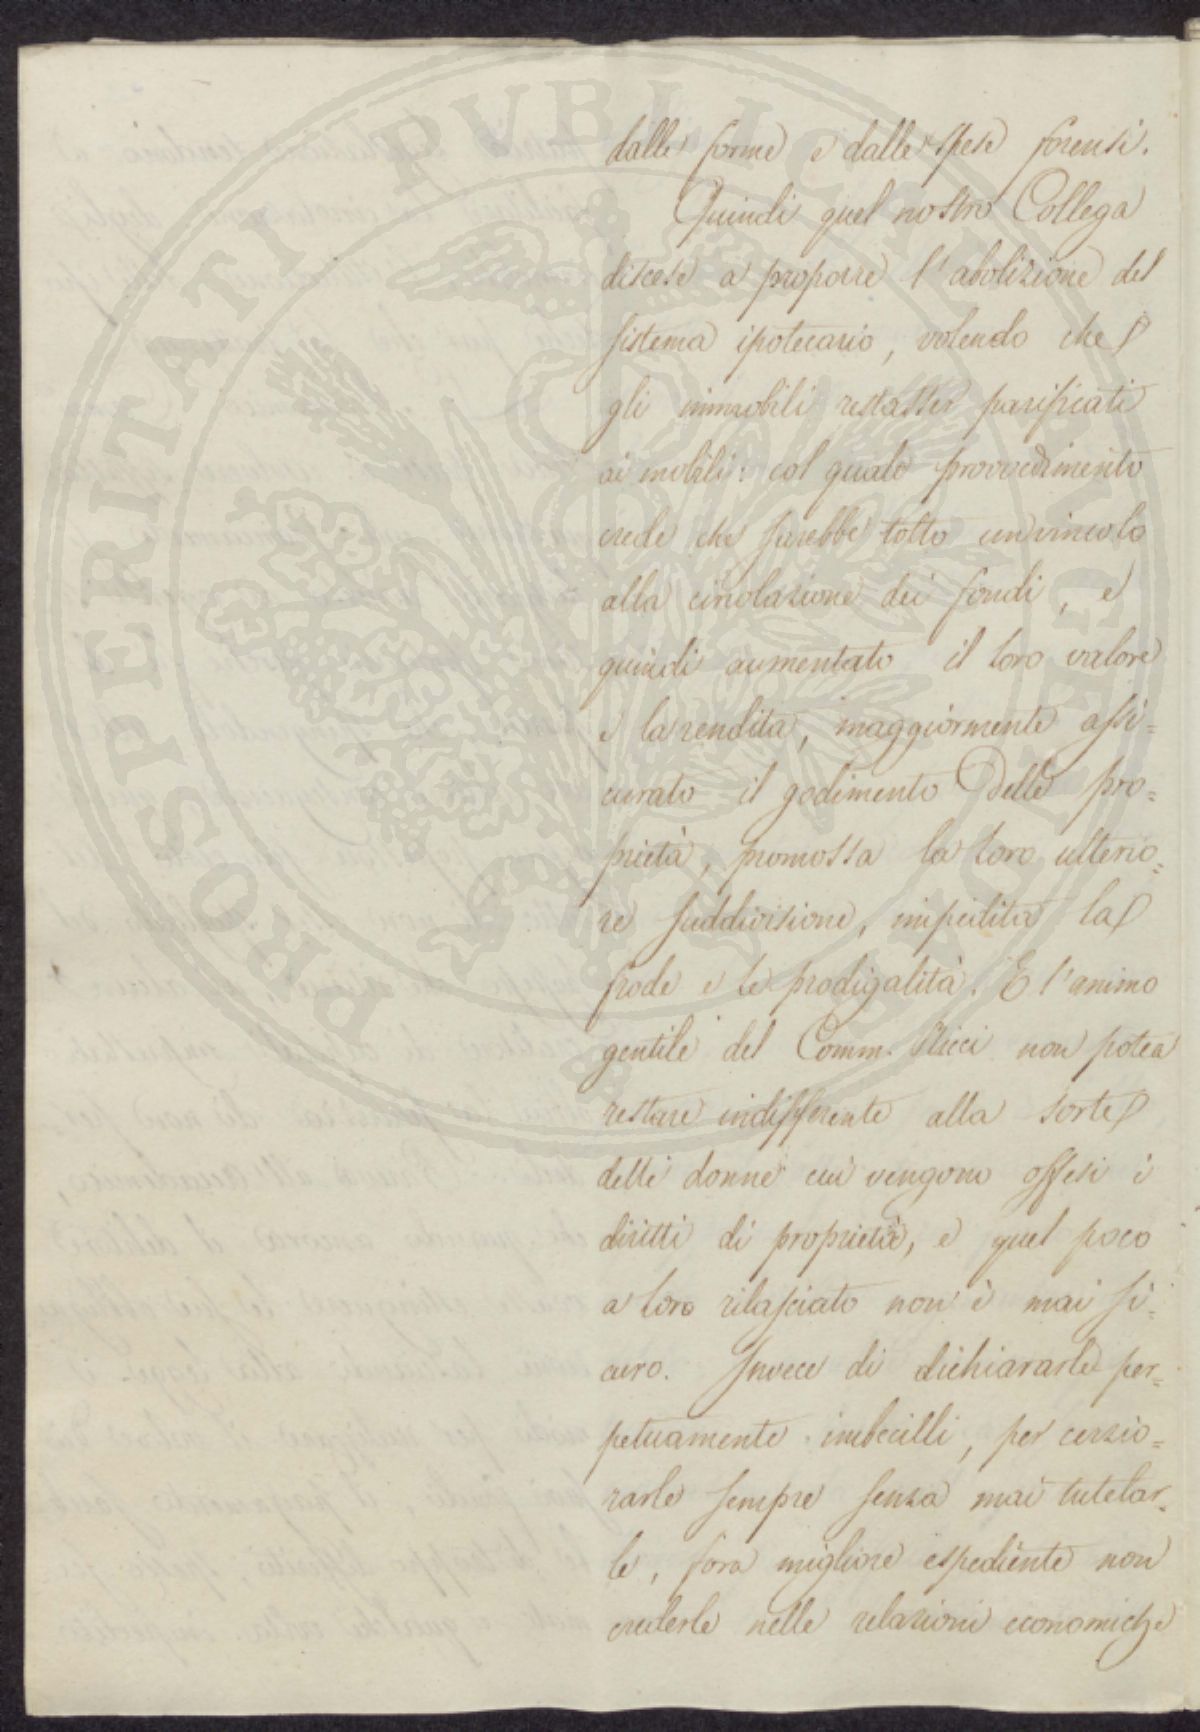 PROSPERITATI PVBLICAE AVGENDAE
dalle forme e dalle spese forensi.
Quindi quel nostro Collega
discese a proporre l'abolizione del
sistema ipotecario, volendo che
gli immobili restasser parificati
ai mobili: col quale provvedimento
crede che sarebbe tolto un vincolo
alla circolazione dei fondi, e
quindi aumentato il loro valore
e la rendita, maggiormente assi=
curato il godimento delle pro=
prietà, promossa la loro ulterio=
re suddivisione, impedita la
frode e le prodigalità. E l'animo
gentile del Comm. Ricci non potea
restare indifferente alla sorte
delle donne cui vengono offesi i
diritti di proprietà, e quel poco
a loro rilasciato non è mai si=
curo. Invece di dichiararle per=
petuamente imbecilli, per cerzio=
rarle sempre senza mai tutelar=
le, fora migliore espediente non
crederle nelle relazioni economiche